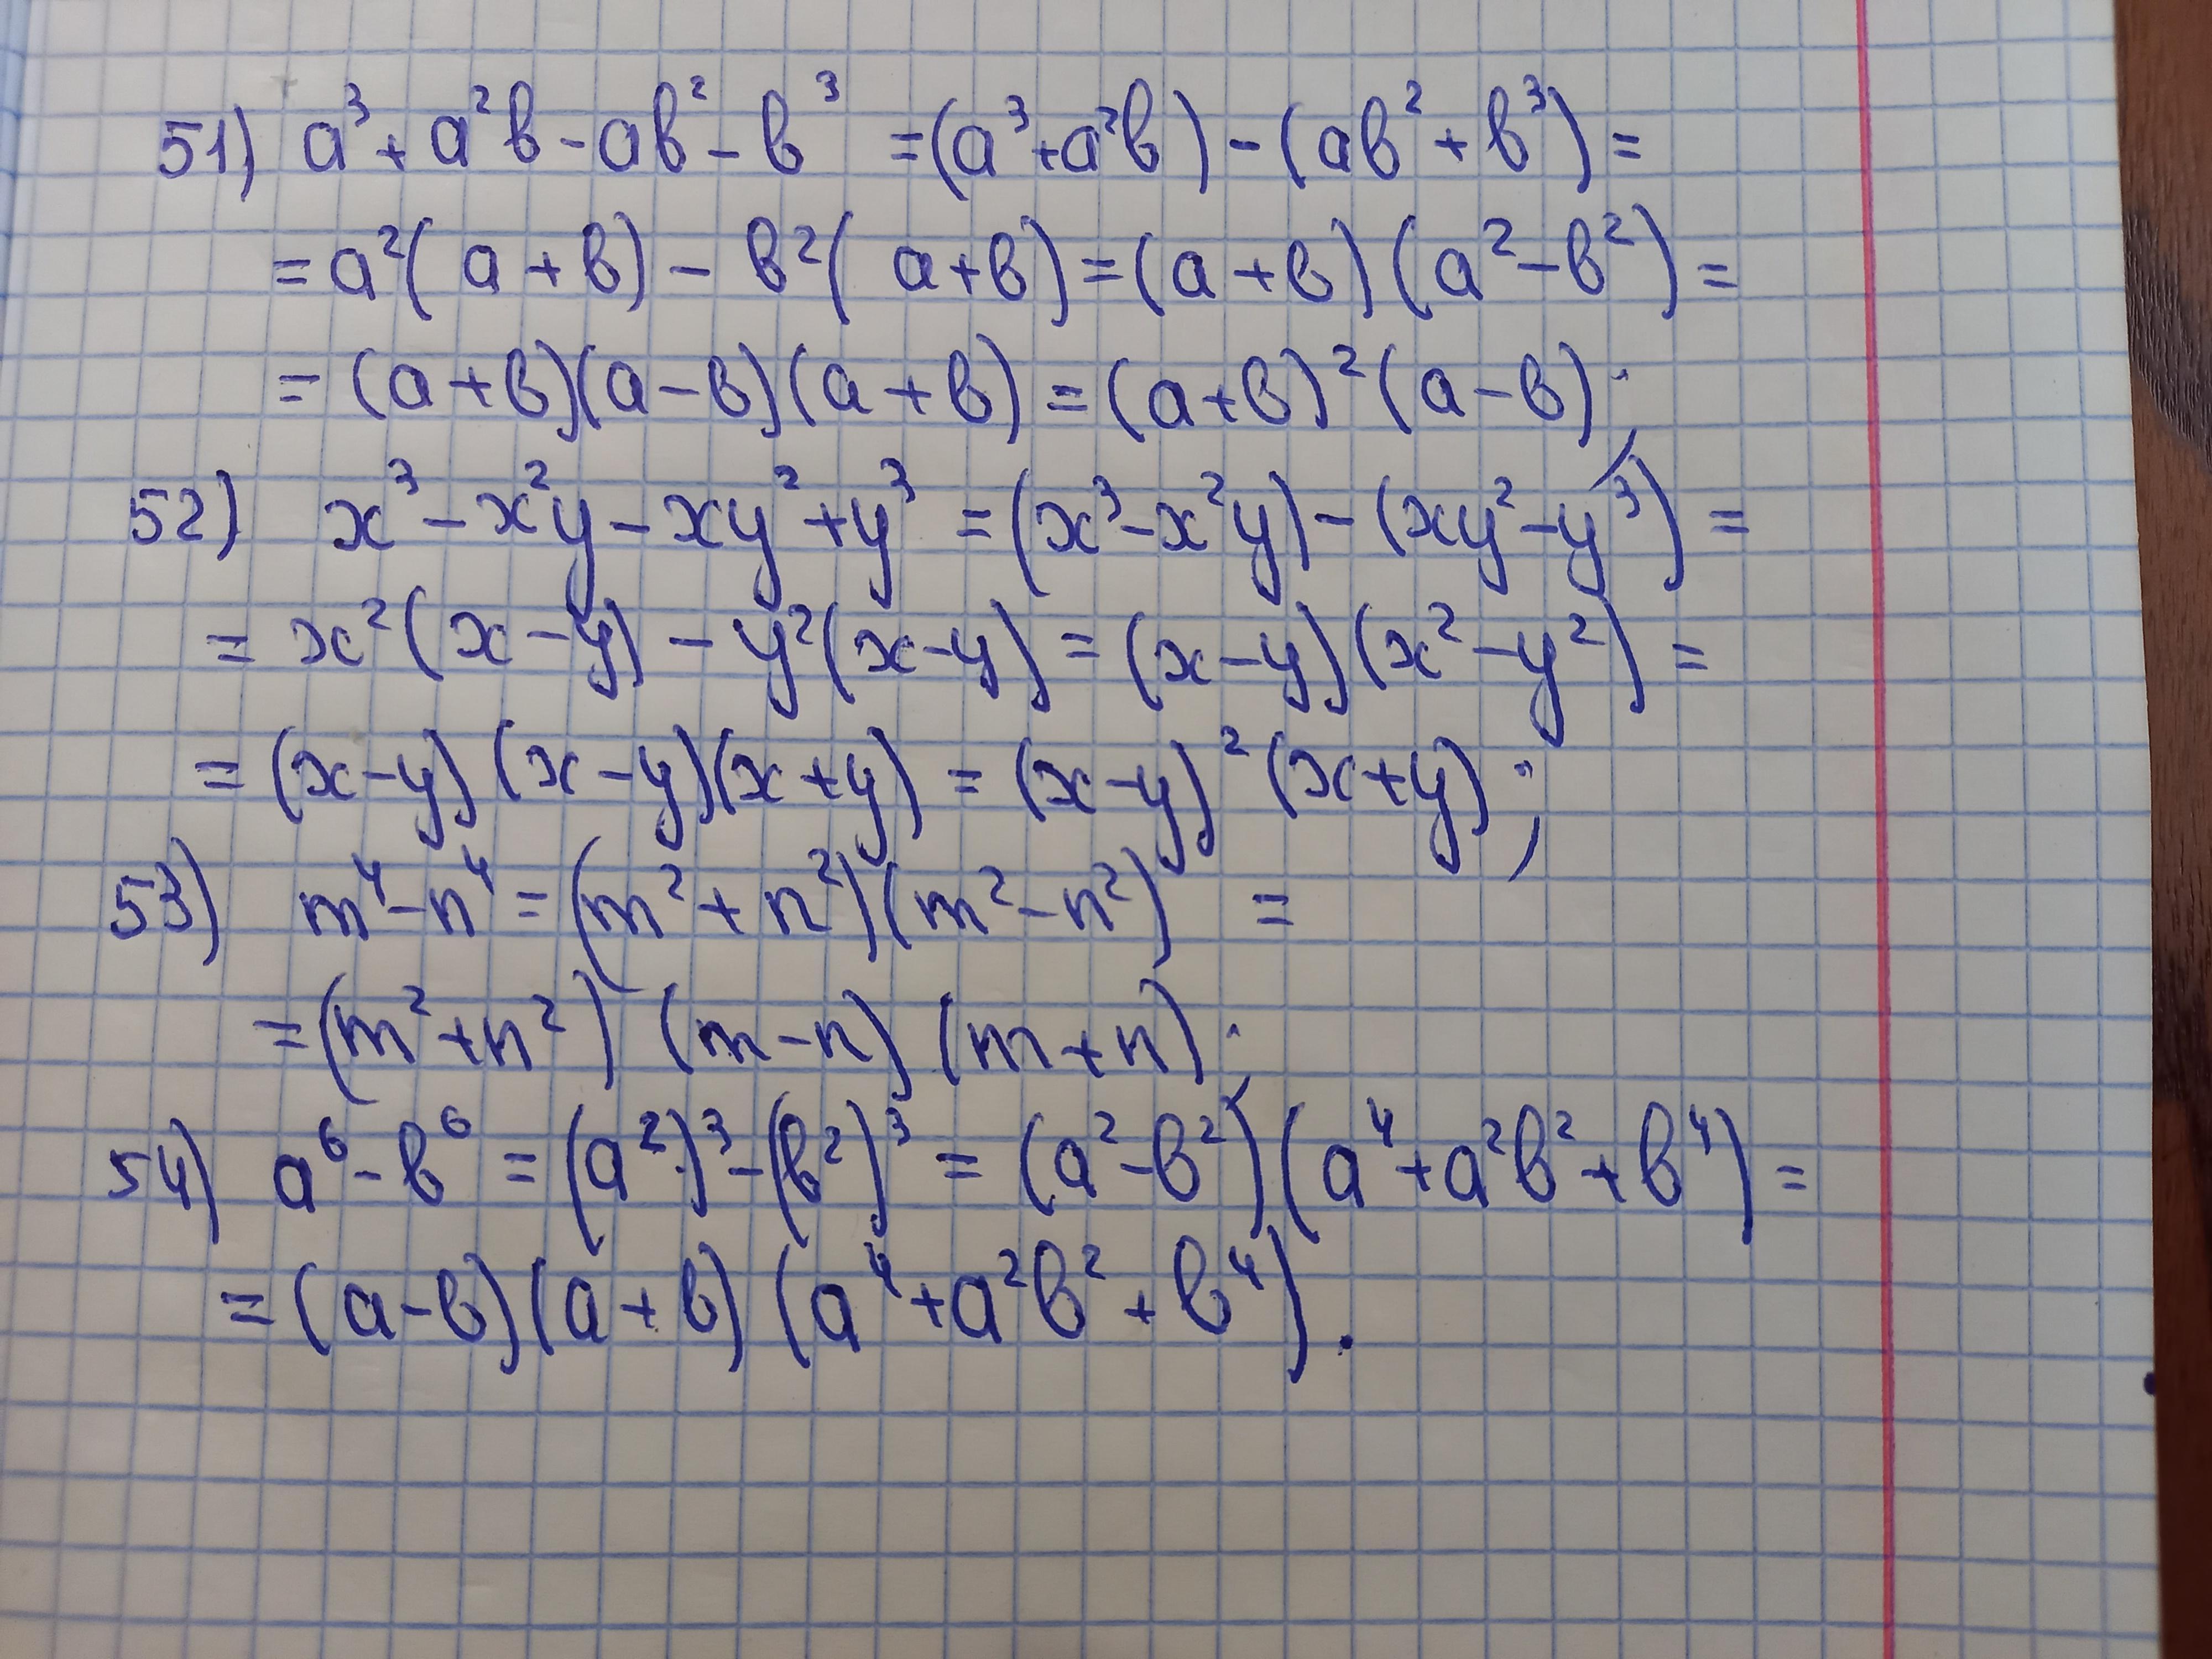 51) a³ + a²в - ав² - в³ = (a³ + a²в) - (ав² + в³) =
= a²(a + в) - в²(a + в) = (a + в)(a² - в²) =
= (a + в)(a - в)(a + в) = (a + в)²(a - в);
52) x³ - x²y - xy² + y³ = (x³ - x²y) - (xy² - y³) =
= x²(x - y) - y²(x - y) = (x - y)(x² - y²) =
= (x - y)(x - y)(x + y) = (x - y)²(x + y);
53) m⁴ - n⁴ = (m² + n²)(m² - n²) =
= (m² + n²)(m - n)(m + n);
54) a⁶ - в⁶ = (a²)³ - (в²)³ = (a² - в²)(a⁴ + a²в² + в⁴) =
= (a - в)(a + в)(a⁴ + a²в² + в⁴).